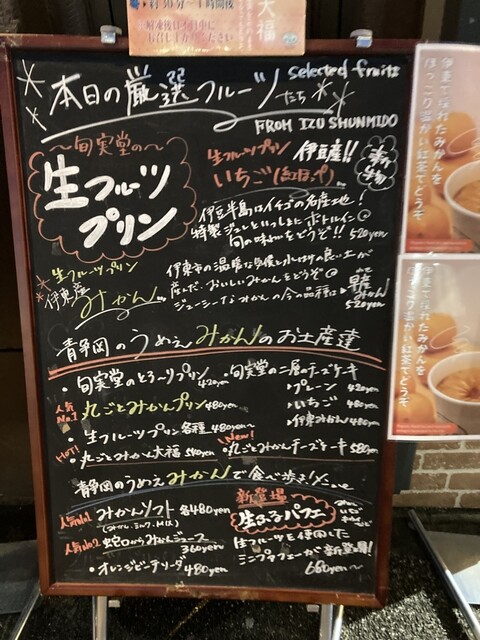 約30分〜1時間後
解凍後は4日中に
お召し上がりください
大福
本日の厳選フルーツたち
Selected fruits
FROM IZU SHUNMIDO
〜旬実堂の〜
生フルーツ
プリン
生フルーツプリン 伊豆産!!
いちご(紅ほっぺ)
伊豆半島はイチゴの名産地!
特製ジュレといっしょにボトルイン◎
旬の味わいをどうぞ!! 520yen
生フルーツプリン
伊東産
みかん
伊東市の温暖な気候と水はけの良い土が
産んだ、おいしいみかんをどうぞ◎
ジューシーなみかんの今の品種は▶早生みかん
520yen
静岡のうめぇみかんのお土産達
・旬実堂のとろ〜りプリン 420yen
人気No.1 丸ごとみかんプリン 480yen
・生フルーツプリン各種 480yen〜
HOT! ・丸ごとみかん大福 540yen
・旬実堂の二層のチーズケーキ
▶プレーン 420yen
▶いちご 480yen
▶伊東みかん 480yen
New! ・丸ごとみかんチーズケーキ 580yen
静岡のうめぇみかんで食べ歩き!
人気No.1 みかんソフト 各480yen
(みかん、ミルク、MIX)
人気No.2 蛇口からみかんジュース
360yen
・オレンジビーナソーダ 480yen
新登場
生ふるパフェ
生フルーツを使用した
ミニプラフェーが新登場!
680yen〜
伊東で採れたみかんを
ほっこり温かい紅茶でどうぞ
伊東で採れたみかんを
ほっこり温かい紅茶でどうぞ